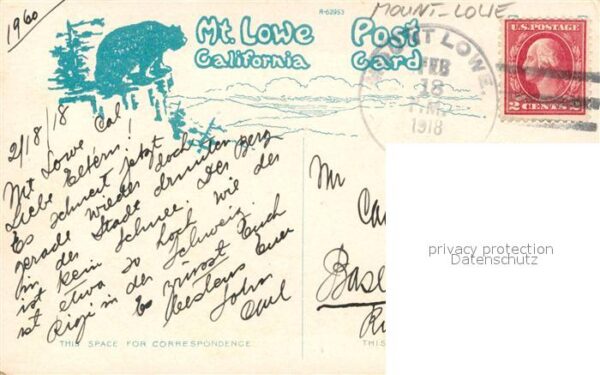 1960
R-62953
MOUNT-LOWE
Mt. Lowe
California
Post
Card
MOUNT LOWE
FEB
18
1918
U.S. POSTAGE
2 CENTS 2
2/18/18
Mt Lowe Cal
Liebe Eltern!
Es schneit jetzt
gerade wieder doch
in der Stadt drunten
ist kein Schnee. Der Berg
ist etwa so hoch wie der
Rigi in der Schweiz.
Es grüsst Euch
bestens Euer
Sohn
Carl
Mr
Ca
Basl
THIS SPACE FOR CORRESPONDENCE
THIS
privacy protection
Datenschutz